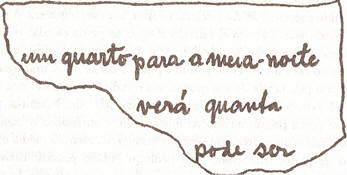 um quarto para a meia-noite
verá quanta
pode ser